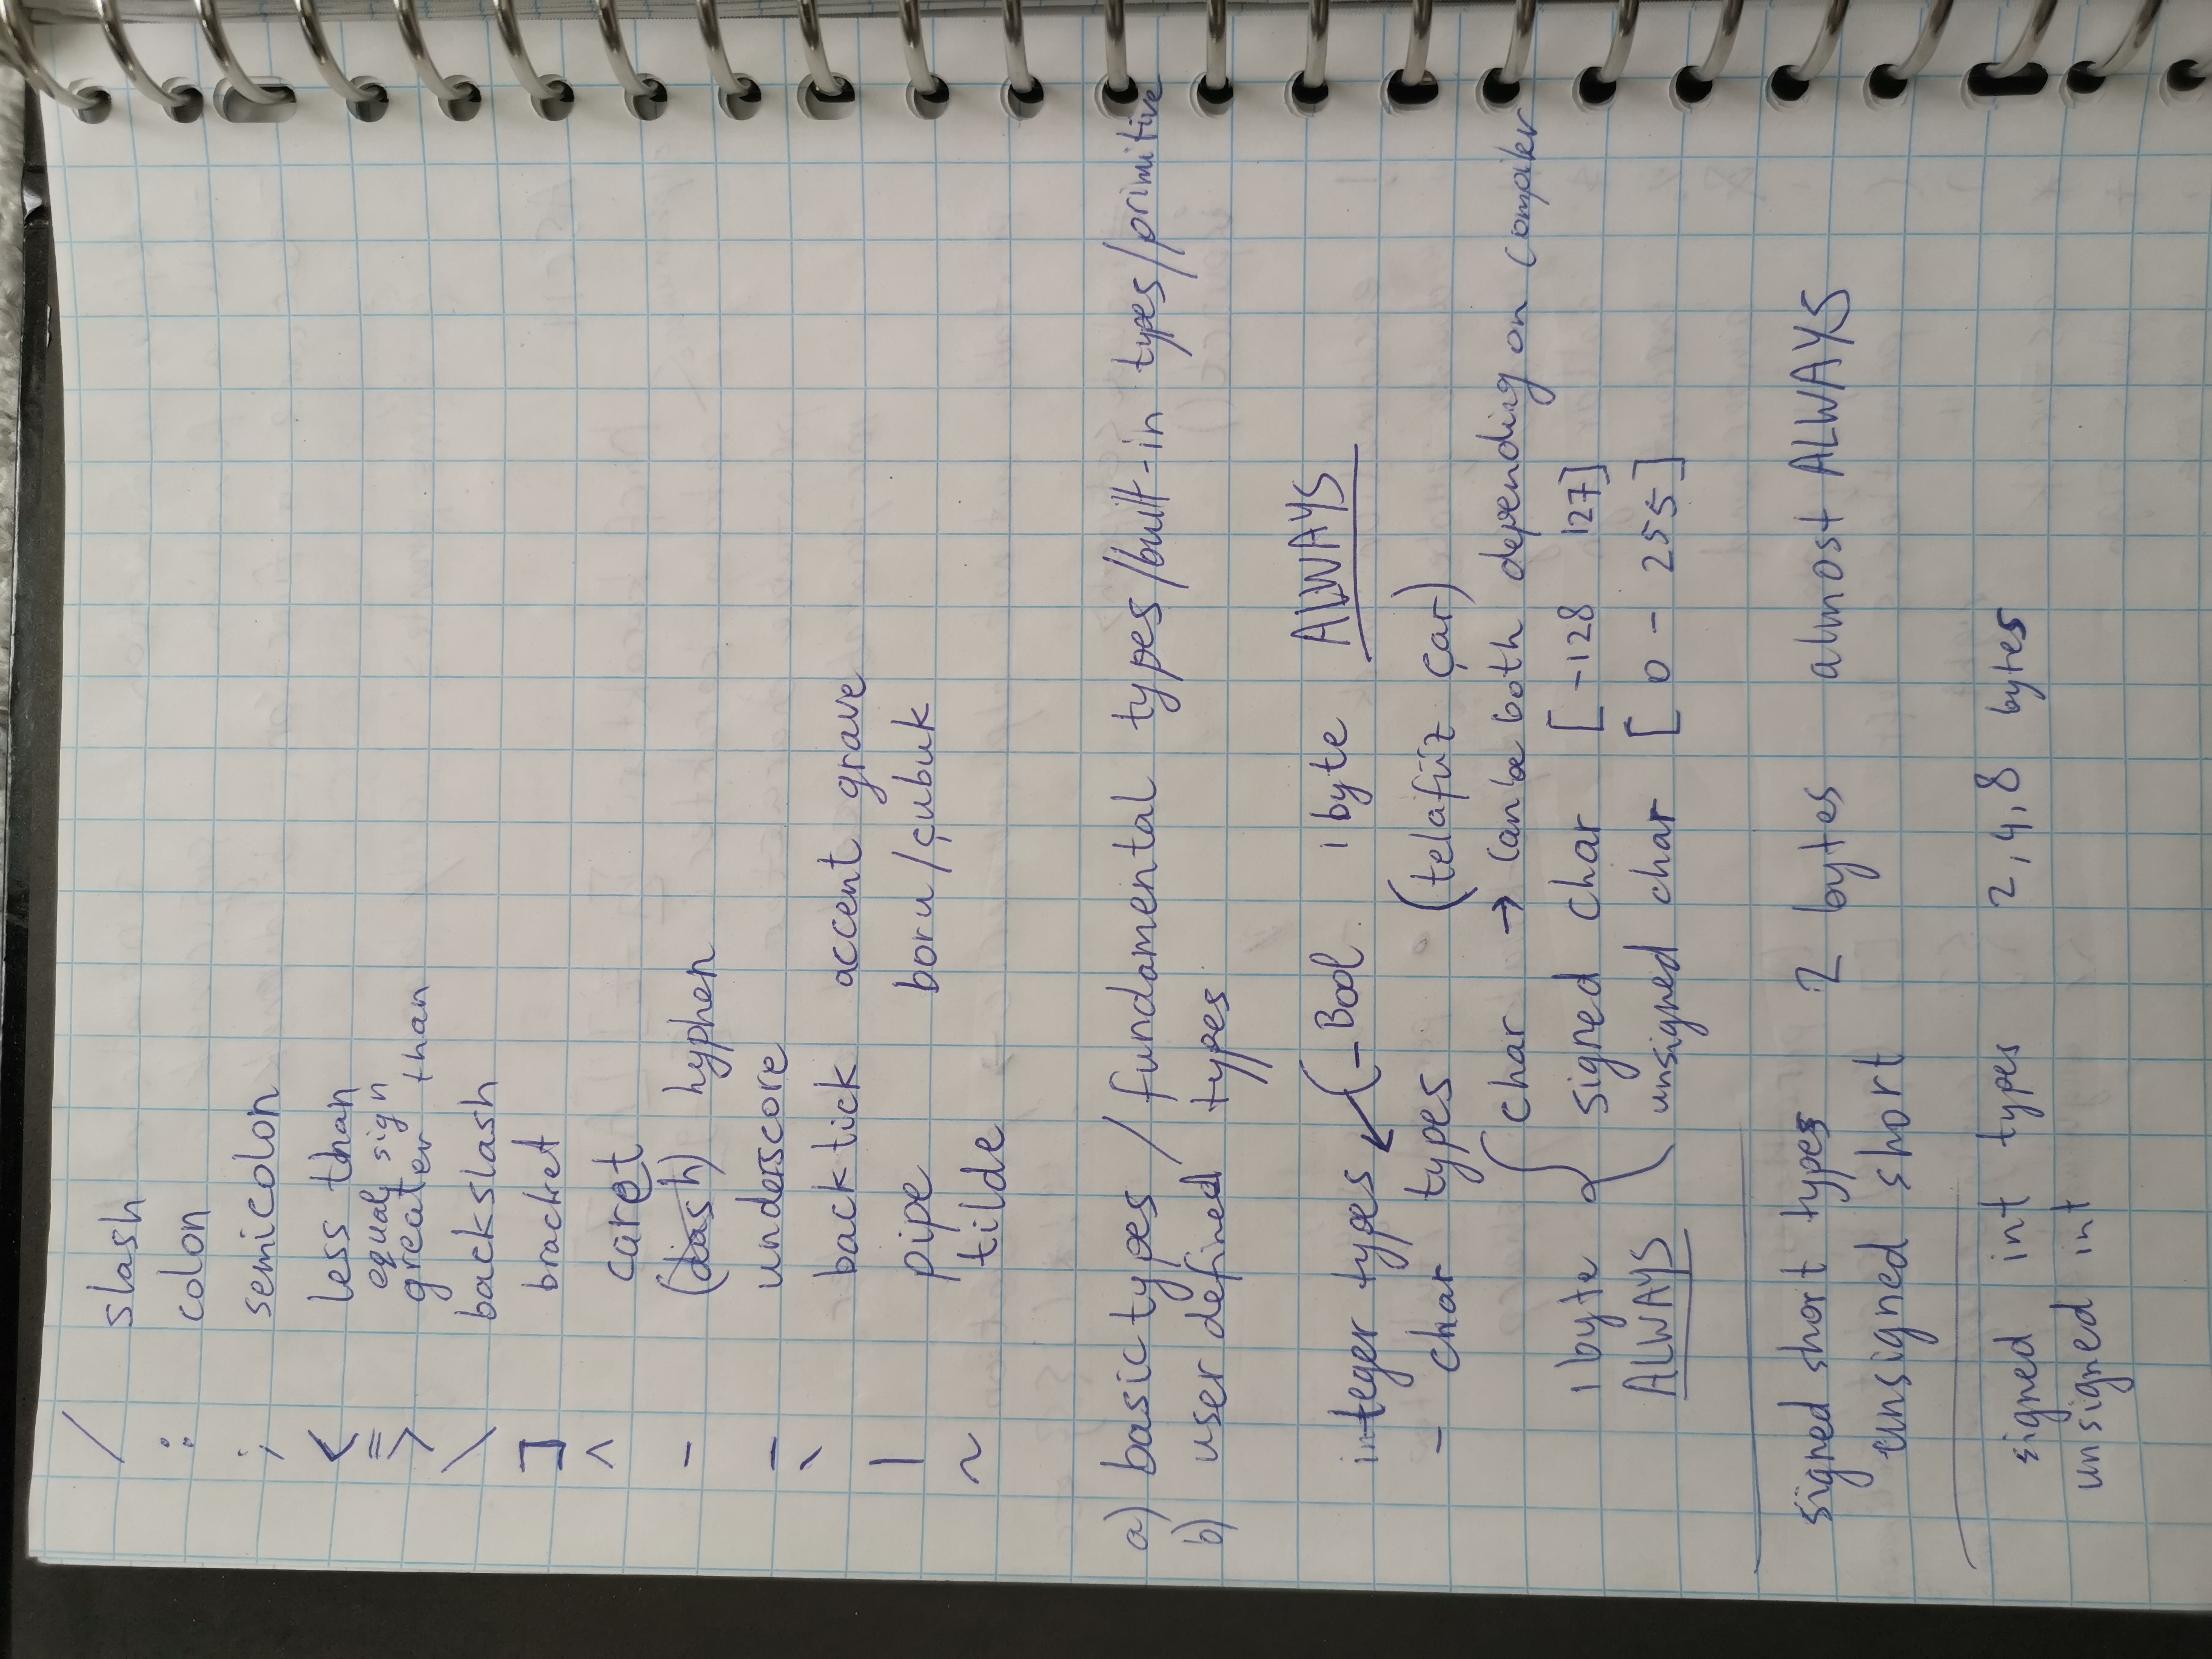 / slash
: colon
; semicolon
< less than
= equal sign
> greater than
\ backslash
] bracket
^ caret
- (dash) hyphen
_ underscore
` backtick accent grave
| pipe boru/çubuk
~ tilde
a) basic types / fundamental types/built-in types/primitive
b) user defined types
(_Bool 1 byte ALWAYS
integer types
- char types (telafüz çar)
char → can be both depending on compiler
1 byte signed char [-128 127]
ALWAYS unsigned char [0 - 255]
signed short types 2 bytes almost ALWAYS
unsigned short
signed int types 2,4,8 bytes
unsigned int